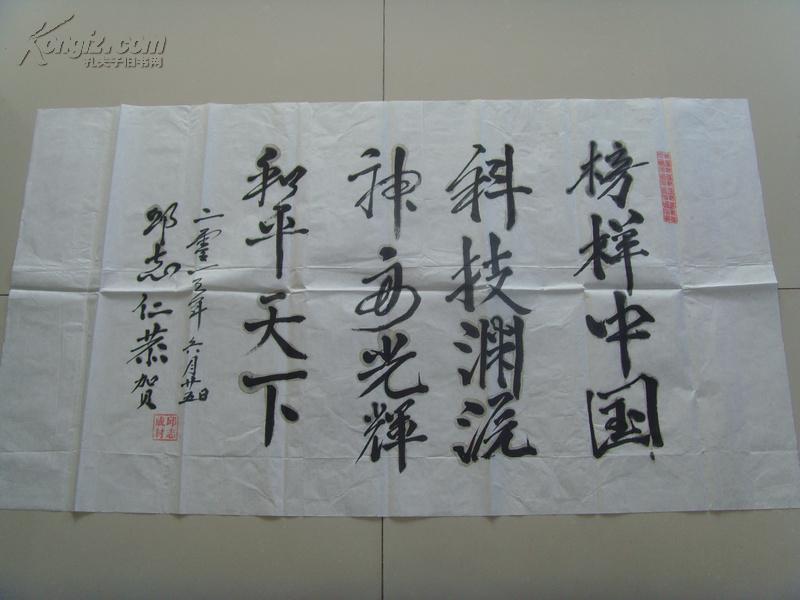 榜样中国
科技渊源
神安光輝
和平天下
二零一五年 六月廿五日
邱志仁恭贺
邱志
成封
Kongfz.com
孔夫子旧书网